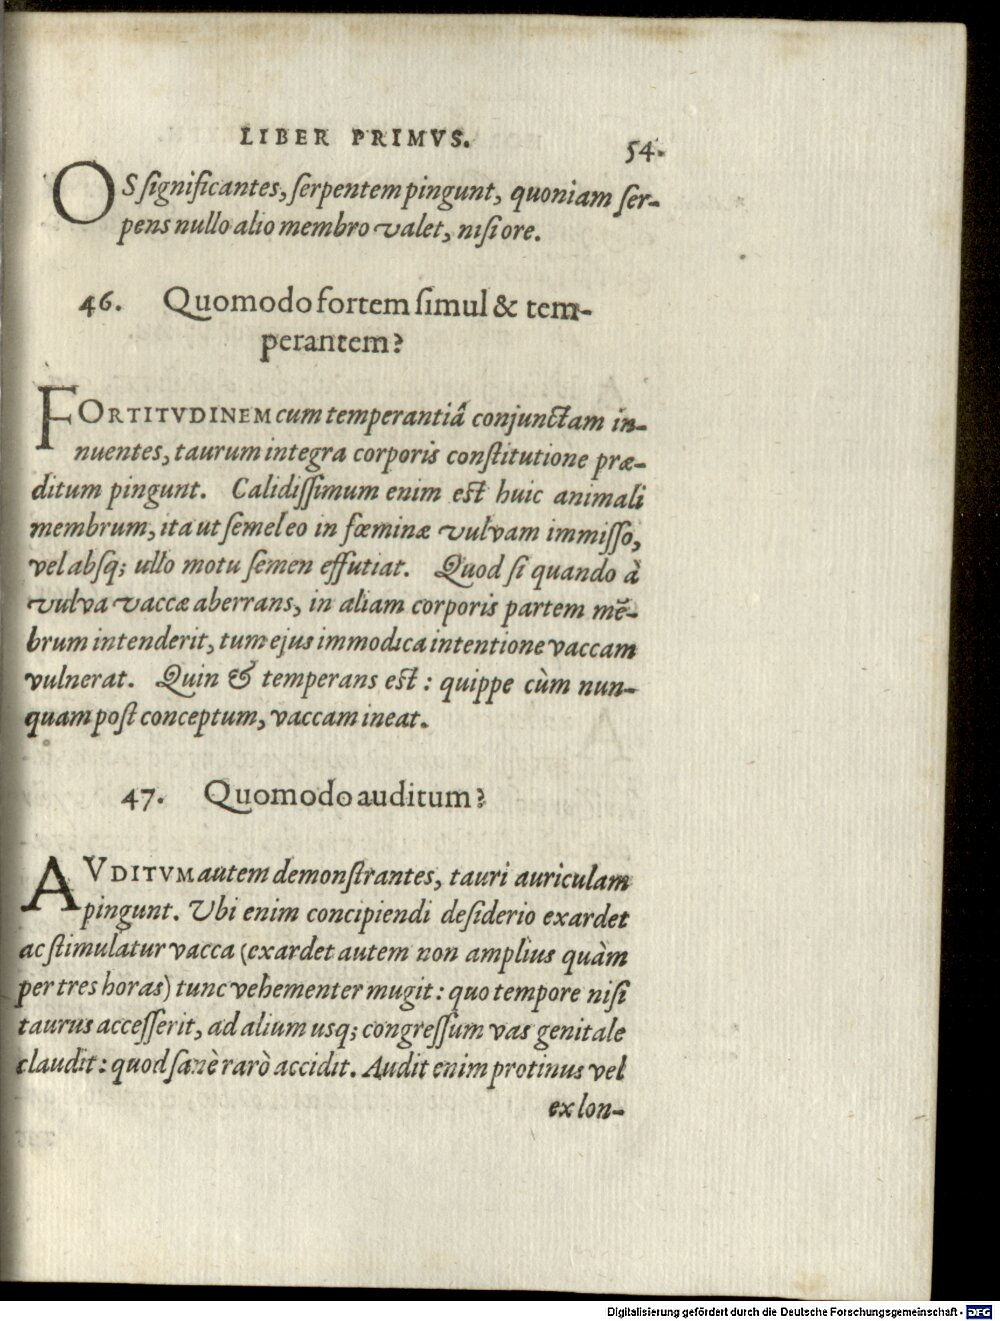 LIBER PRIMVS. 54.
OS ſignificantes, ſerpentem pingunt, quoniam ſer-
pens nullo alio membro valet, niſi ore.
46. Quomodo fortem ſimul & tem-
perantem?
FORTITVDINEM cum temperantiâ conjunctam in-
nuentes, taurum integra corporis conſtitutione præ-
ditum pingunt. Calidiſſimum enim eſt huic animali
membrum, ita ut ſemel eo in fœminæ vulvam immiſſo,
vel abſq; ullo motu ſemen effutiat. Quod ſi quando à
vulva vaccæ aberrans, in aliam corporis partem mẽ-
brum intenderit, tum ejus immodica intentione vaccam
vulnerat. Quin & temperans eſt : quippe cùm nun-
quam poſt conceptum, vaccam ineat.
47. Quomodo auditum?
AVDITVM autem demonſtrantes, tauri auriculam
pingunt. Ubi enim concipiendi deſiderio exardet
ac ſtimulatur vacca (exardet autem non amplius quàm
per tres horas) tunc vehementer mugit : quo tempore niſi
taurus acceſſerit, ad alium usq; congreſſum vas genitale
claudit : quod ſanè rarò accidit. Audit enim protinus vel
ex lon-
Digitalisierung gefördert durch die Deutsche Forschungsgemeinschaft - DFG